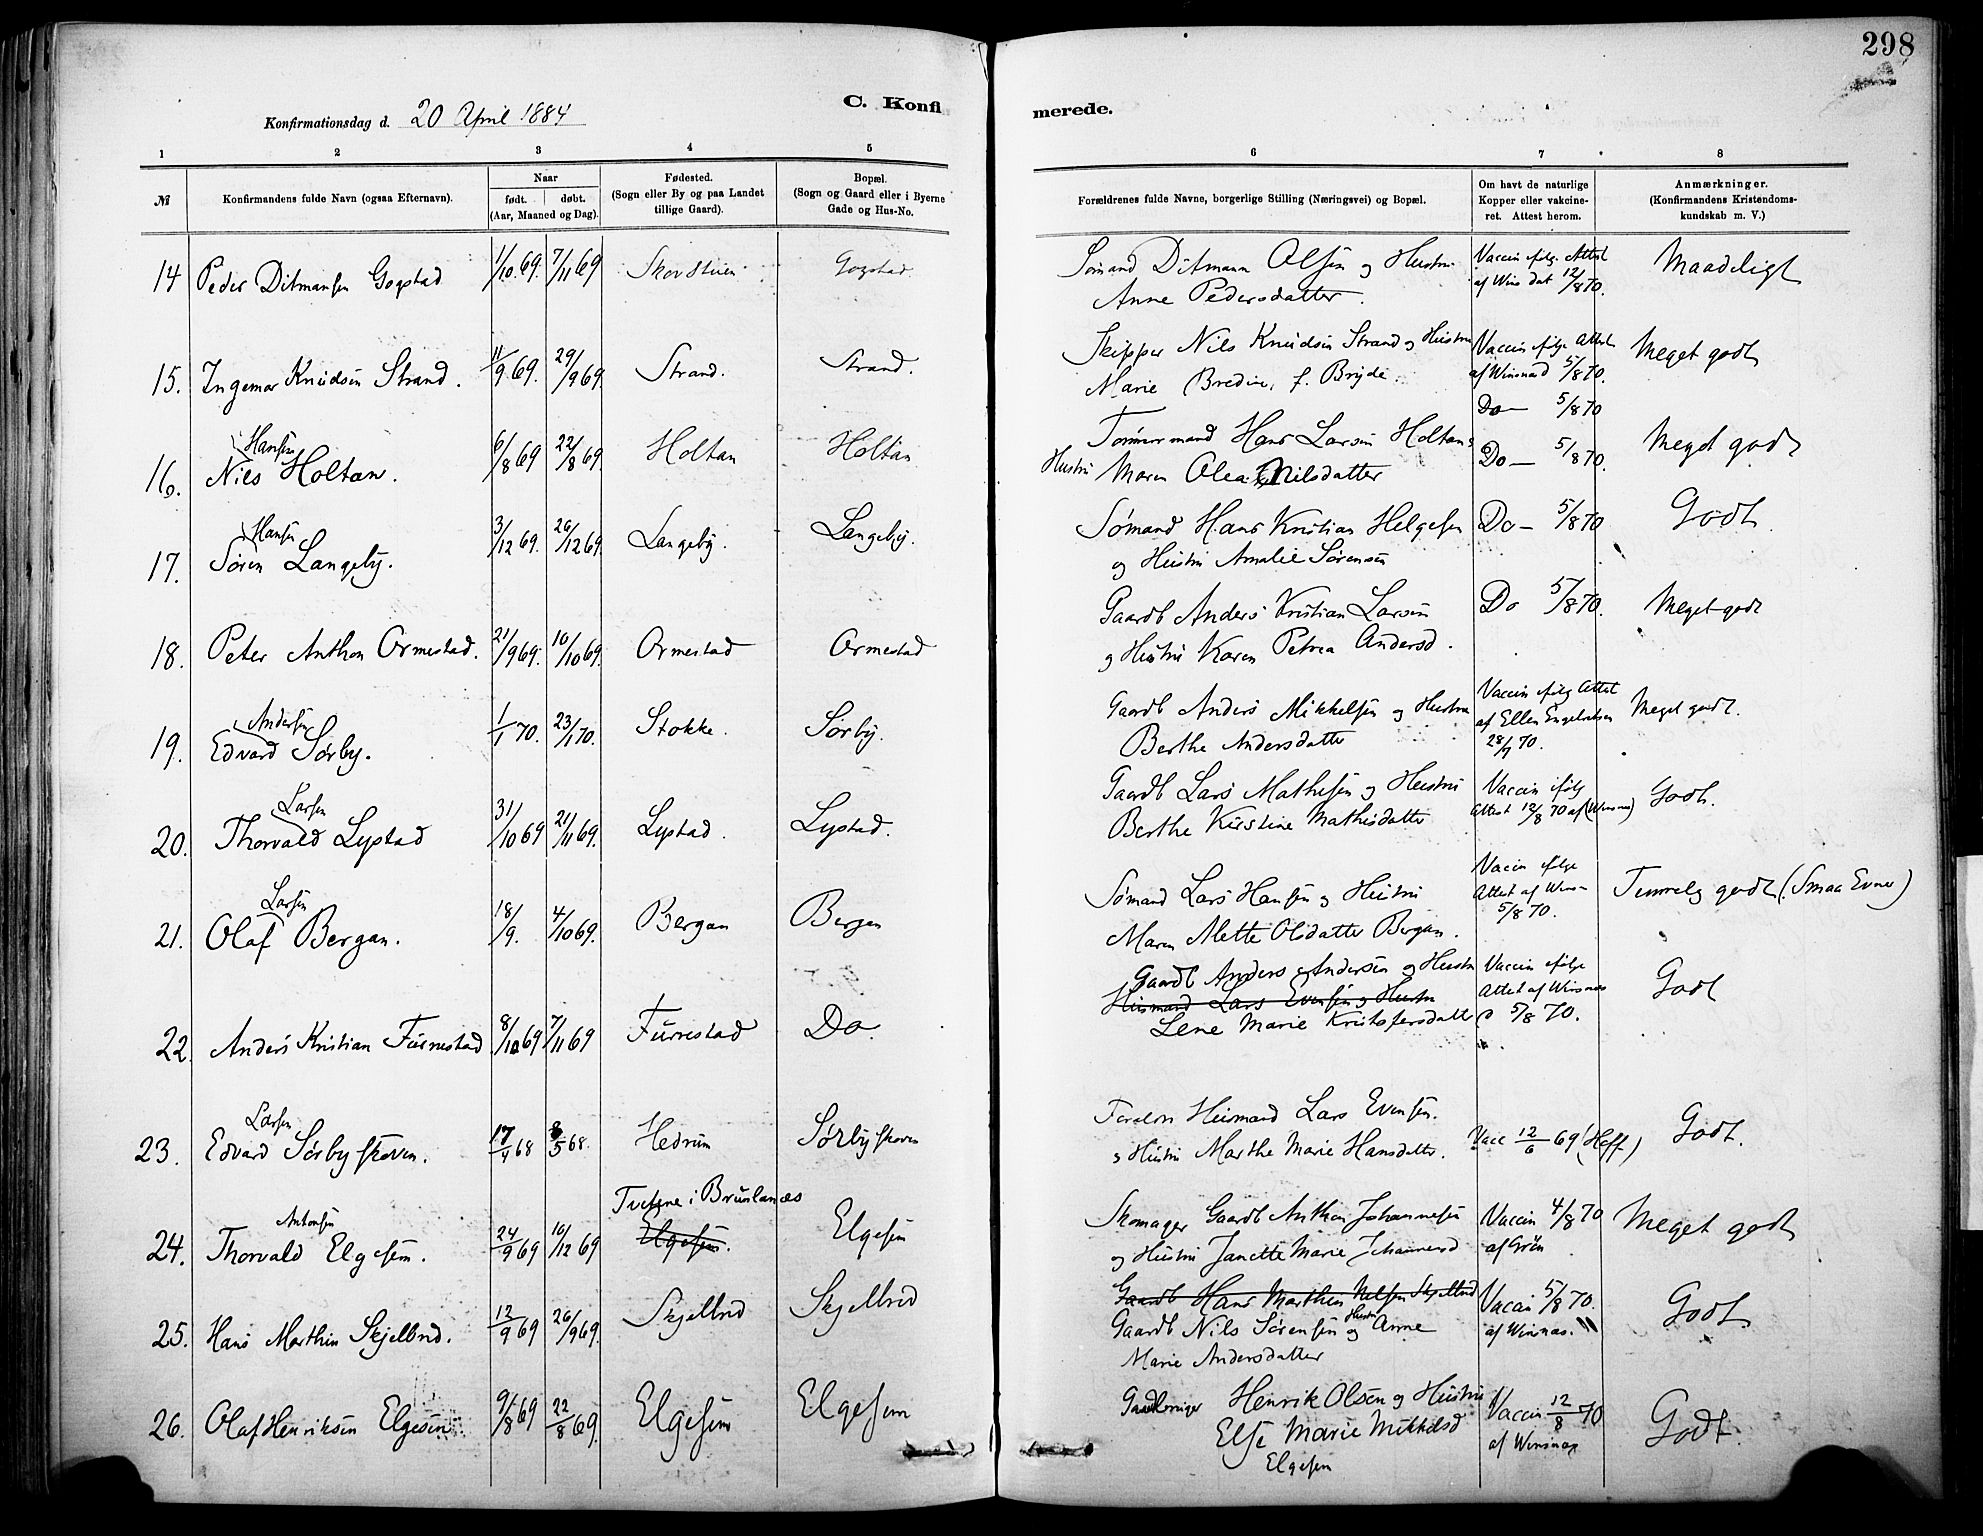 298
C. Konfi
merede.
Konfirmationsdag d. 20 April 1884
1 2 3 4 5 6 7 8
№ Konfirmandens fulde Navn (ogsaa Efternavn). Naar født. døbt. (Aar, Maaned og Dag). Fødested. (Sogn eller By og paa Landet tillige Gaard). Bopæl. (Sogn og Gaard eller i Byerne Gade og Hus-No. Forældrenes fulde Navne, borgerlige Stilling (Næringsvei) og Bopæl. Om havt de naturlige Kopper eller vakcineret. Attest herom. Anmærkninger. (Konfirmandens Kristendomskundskab m. V.)
14 Peder Ditmansen Gogstad 1/10 69. 7/11 69 Gogstad Sømand Ditmann Olsen og Hustru Vaccin ifølge Attest Maadeligt
Anne Pedersdatter. af Wins dat 12/8 70.
15. Ingemar Knudsen Strand. 11/9 69. 29/9 69. Strand. Strand. Skipper Nils Knudsen Strand og Hustru Vaccin ifølge Attest Meget godt
Marie Bredine, f. Bryde. af Winsnæs 5/8 70.
Do 5/8 70
Hansen
16. Nils Holtan. 6/8 69 22/8 69. Holtan Holtan Tømmermand Hans Larsen Holtan Do 5/8 70. Meget godt
Hustru Maren Olea Nilsdatter
Hansen
17. Søren Langeby. 3/12 69. 26/12 69. Langeby. Langeby. Sømand Hans Kristian Helgesen Do 5/8 70 Godt
og Hustru Amalie Sørensen
18. Peter Anthon Ormestad. 21/9 69. 10/10 69. Ormestad Ormestad Gaardb Anders Kristian Larsen Do 5/8 70. Meget godt
og Hustru Karen Petrea Andersd.
Andersen
19. Edvard Sørby. 1/1 70. 23/1 70. Stokke. Sørby. Gaardb Anders Mikkelsen og Hustru Vaccin ifølg Attest Meget godt.
Berthe Andersdatter af Ellen Engebretsen 28/7 70.
Larsen
20. Thorvald Lystad 31/10 69 21/11 69. Lystad. Lystad. Gaardb Lars Mathisen og Hustru Vaccin ifølg Godt.
Berthe Kirstine Mathisdatter Attest 12/8 70 af (Winsnæs)
Larsen
21. Olaf Bergan. 18/9. 4/10 69. Bergan Bergan Sømand Lars Hansen og Hustru Vaccin ifølge Attest af Wins- 5/8 70. Temmelig godt (Smaa Evner)
Maren Mette Olsdatter Bergan.
Gaardb Anders Andersen og Hustru Vaccin ifølge
Husmand Lars Evensen og Hustru Attest af Winsnæs Godt
22. Anders Kristian Furnestad 8/10 69 7/11 69 Furnestad Do. Lene Marie Kristofersdatter 5/8 70.
Larsen
23. Edvard Sørbyskoven. 17/4 68 8/5 68. Hedrum Sørbyskoven Husmand Lars Evensen. Vacc 12/6 69 (Hoff) Godt.
og Hustru Marthe Marie Hansdatter.
Antonsen
Tvetene i Brunlanæs
24. Thorvald Elgesem. 24/9 69 10/12 69 Elgesem. Elgesem Skomager Gaardb Anthon Johannesen Vaccin 4/8 70 Meget godt
og Hustru Janette Marie Johannesd af Grøn
Gaardb Hans Marthin Nilsen Skjelbred
25. Hans Marthin Skjelbred. 12/9 69 26/9 69. Skjelbred Skjelbred Gaardb Nils Sørensen og Hustru Anne Vaccin 5/8 70. Godt
Marie Andersdatter af Winsnæs.
26. Olaf Henriksen Elgesem 9/8 69 22/8 69. Elgesem Elgesem Gaardbruger Henrik Olsen og Hustru Vaccin 12/8 70 Godt.
Else Marie Mikkelsd af Winsnæs
Elgesem